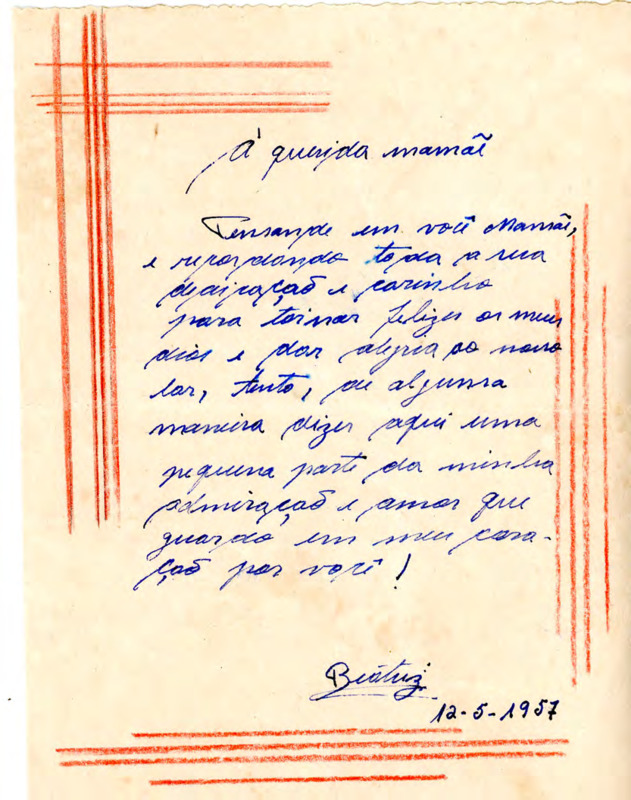 À querida mamãe
Pensando em você Mamãe,
e recordando toda a sua
dedicação e carinho
para tornar felizes os meus
dias e dar alegria ao nosso
lar, tento, de alguma
maneira dizer aqui uma
pequena parte da minha
admiração e amor que
guardo em meu cora-
ção por você!
Beatriz
12-5-1957